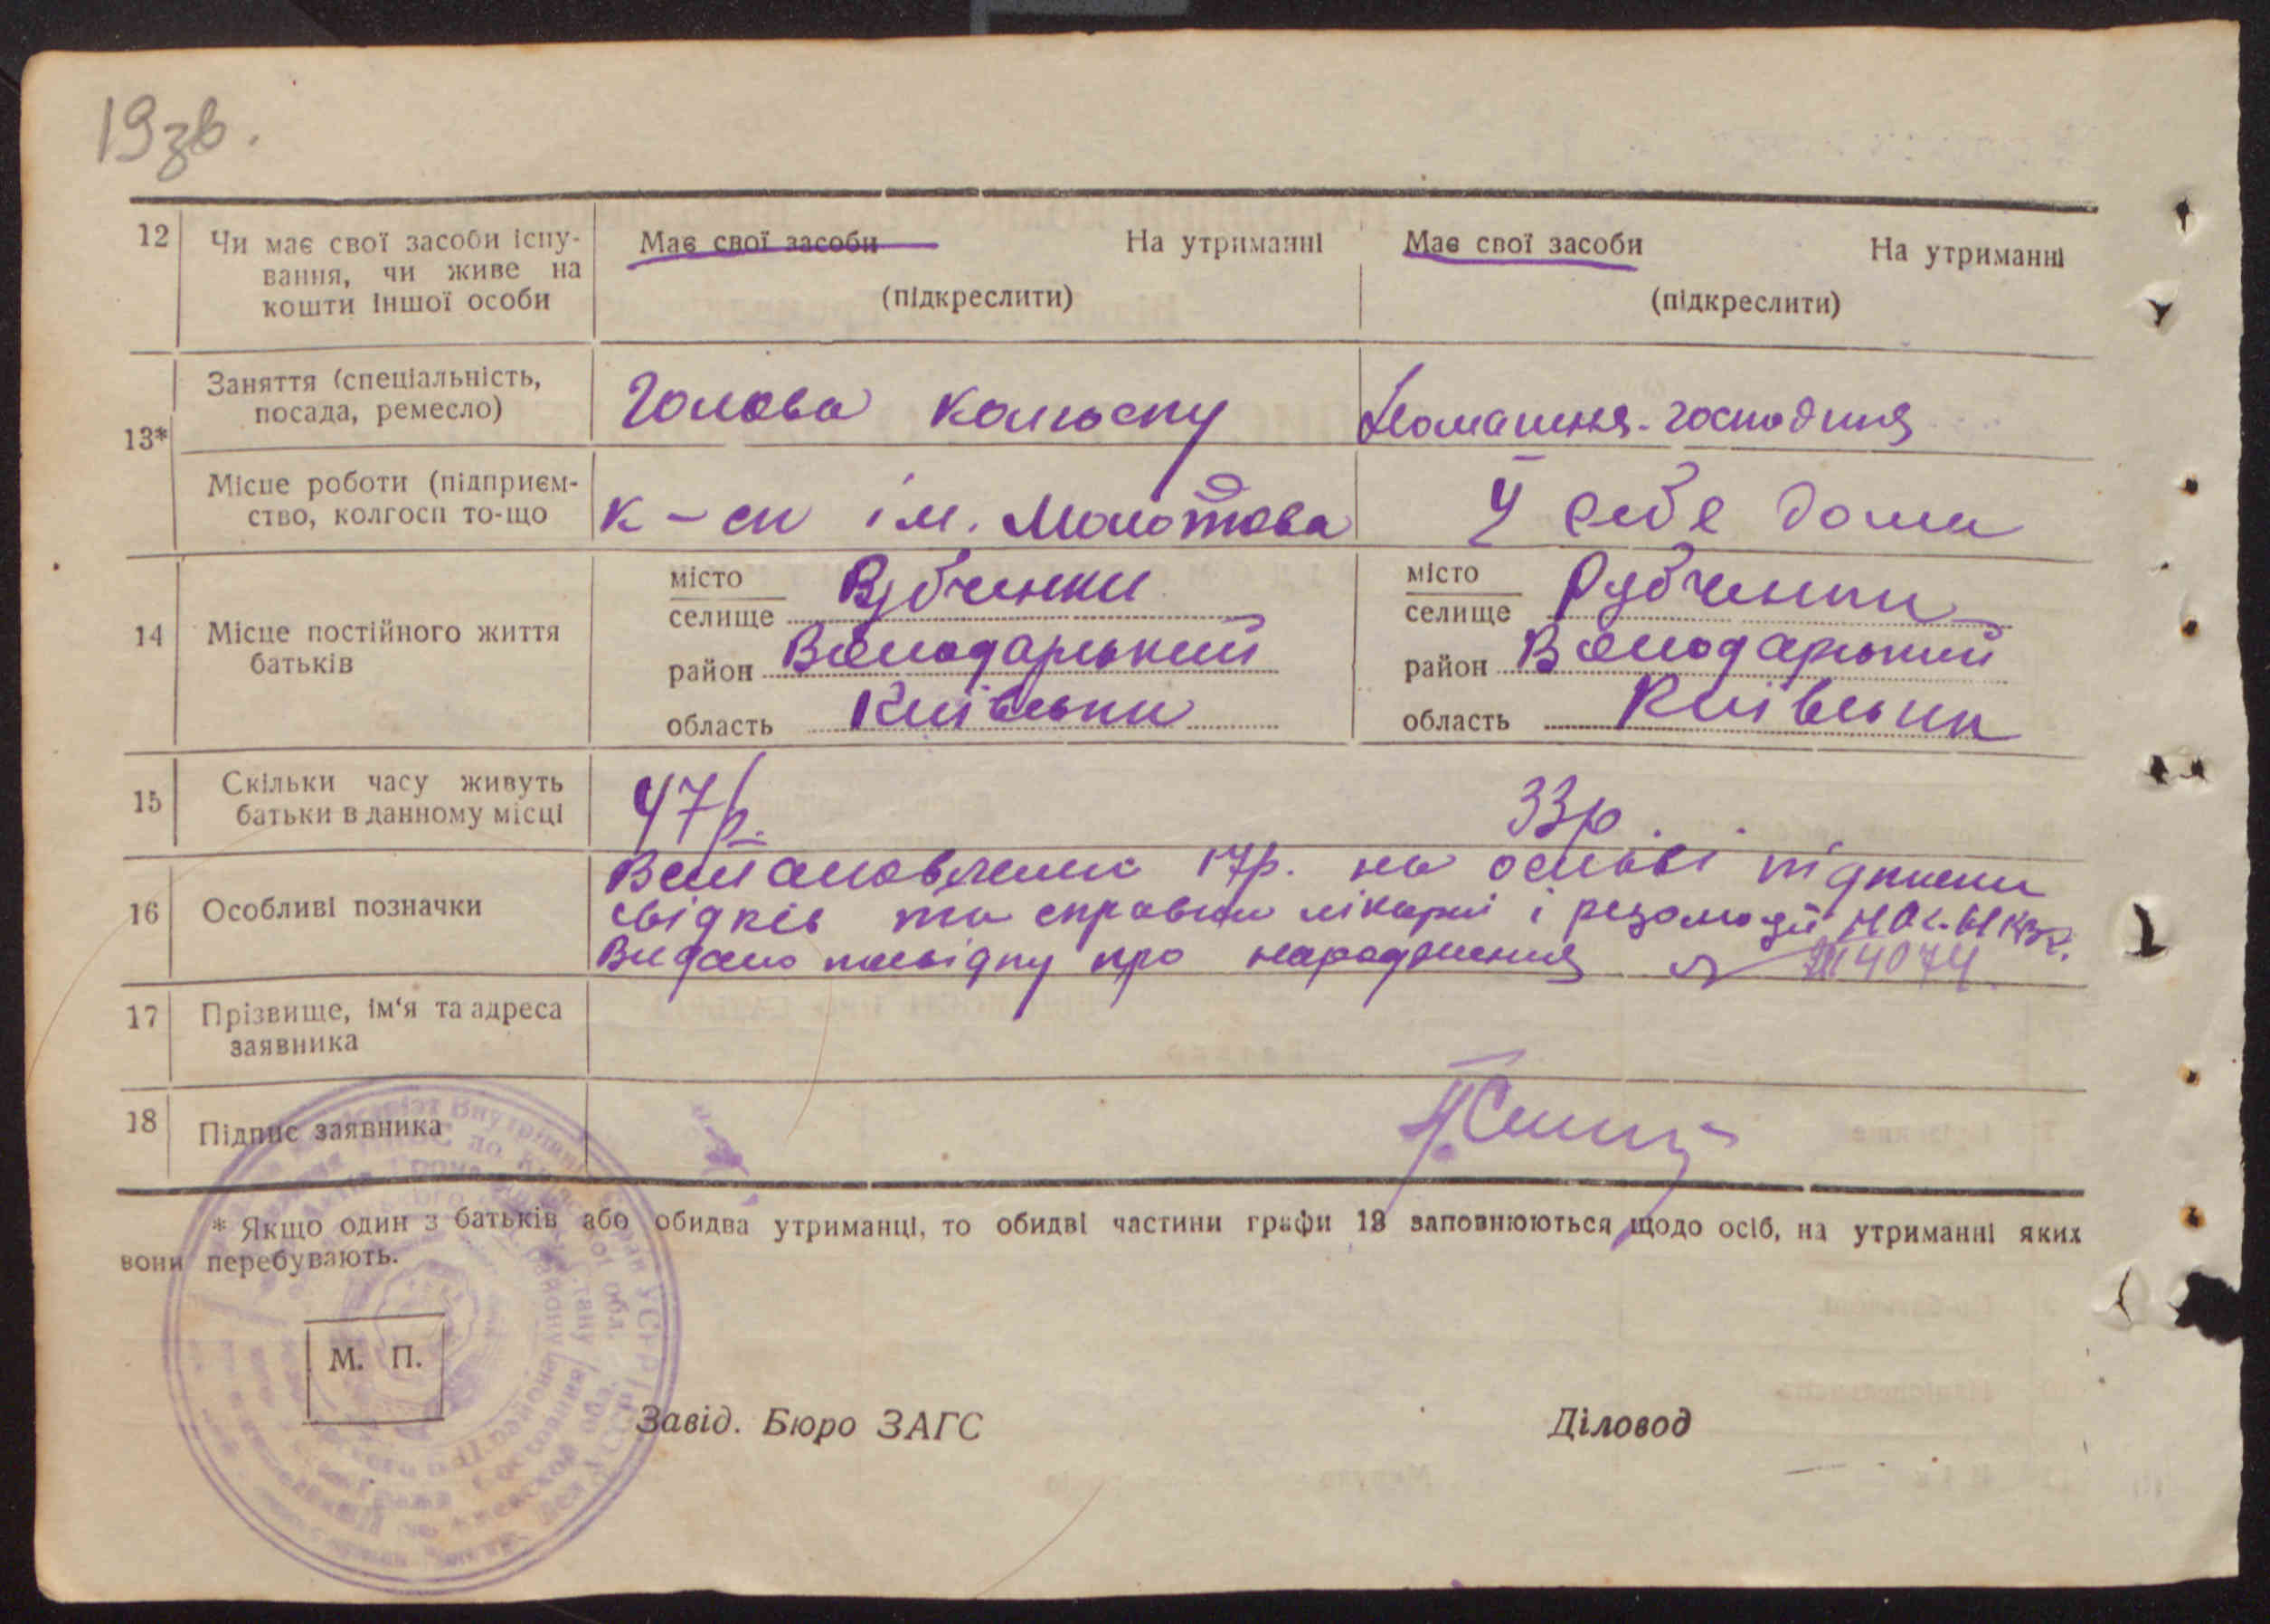 19зв.
12 Чи має свої засоби існу-
вання, чи живе на
кошти іншої особи
Має свої засоби На утриманні
(підкреслити)
Має свої засоби На утриманні
(підкреслити)
13*
Заняття (спеціальність,
посада, ремесло)
Голова колгоспу
Домашня-господиня
Місце роботи (підприєм-
ство, колгосп то-що
К-сп ім. Молотова
У себе дома
14 Місце постійного життя
батьків
місто
селище Рубченки
район Володарський
область Київська
місто
селище Рубченки
район Володарський
область Київська
15 Скільки часу живуть
батьки в данному місці
47р.
33р.
16 Особливі позначки
17р. на основі підписки
свідків та справки лікарні і резолюції
Видано посвідку про народження № 4074
17 Прізвище, ім‘я та адреса
заявника
18 Підпис заявника
* Якщо один з батьків або обидва утриманці, то обидві частини графи 13 заповнюються щодо осіб, на утриманні яких
вони перебувають.
М. П.
Завід. Бюро ЗАГС Діловод